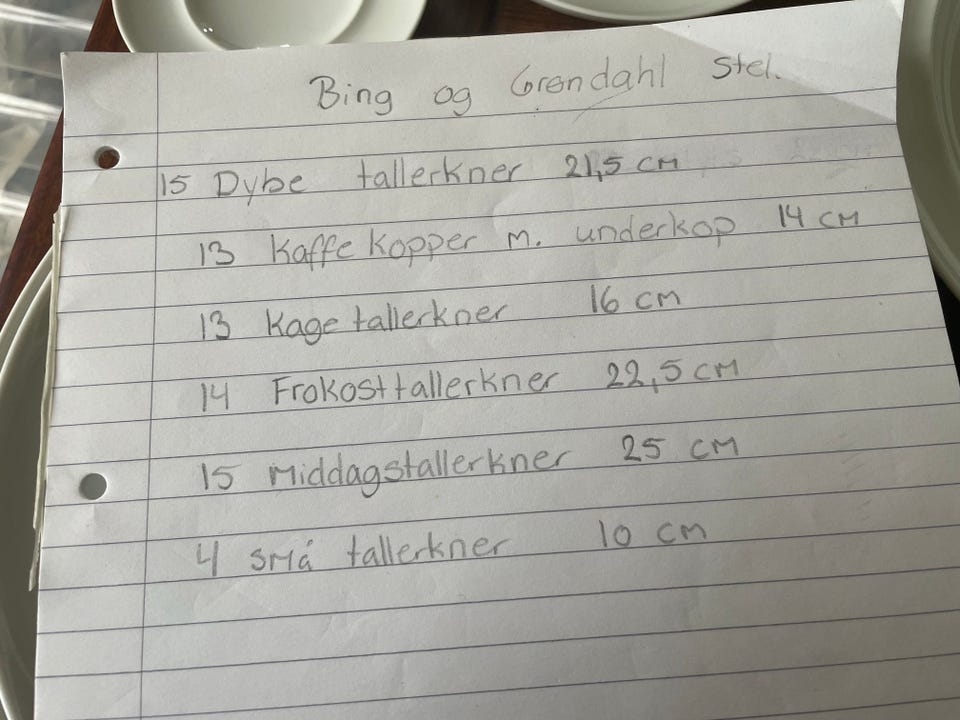 Bing og Grøndahl Stel.
15 Dybe tallerkner 21,5 cm
13 Kaffe kopper m. underkop 14 cm
13 Kage tallerkner 16 cm
14 Frokosttallerkner 22,5 cm
15 Middagstallerkner 25 cm
4 små tallerkner 10 cm